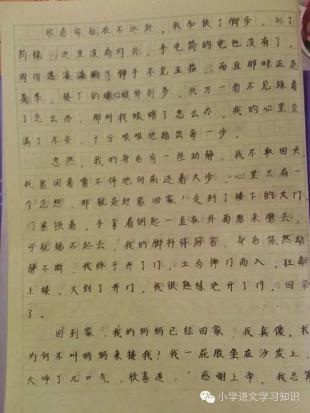 眼看家就在不远处，我加快了脚步，到了
阶梯，这里没有灯光，手电筒的电也没有了，
周围黑漆漆的，伸手不见五指，而且那时正是
夏季，楼下的蟑螂特别多，我万一看不见踩着
了怎么办，那时我瞎了怎么办，我的心里充
满了不安，十分艰难地踏出每一步。
忽然，我的身后有一丝动静，我不敢回头，
我紧闭着嘴不停地向前迈着大步，心里只有一
个念想，那就是赶紧回家！走到了楼下的大门，
门紧锁着，手拿着钥匙一直在外面磨来磨去，
可就插不起去，我的脚抖得厉害，身后依然动
静不断，我终于开了门，立马伸门而入，狂奔
上楼，又到了开门，我很熟练地开了门，回家
了。
回到家，我的妈妈已经回家，我真傻，我
为何不叫妈妈来接我！我一屁股坐在沙发上，
大呼了几口气，欣喜道：“感谢上帝，我总算
小学语文学习知识